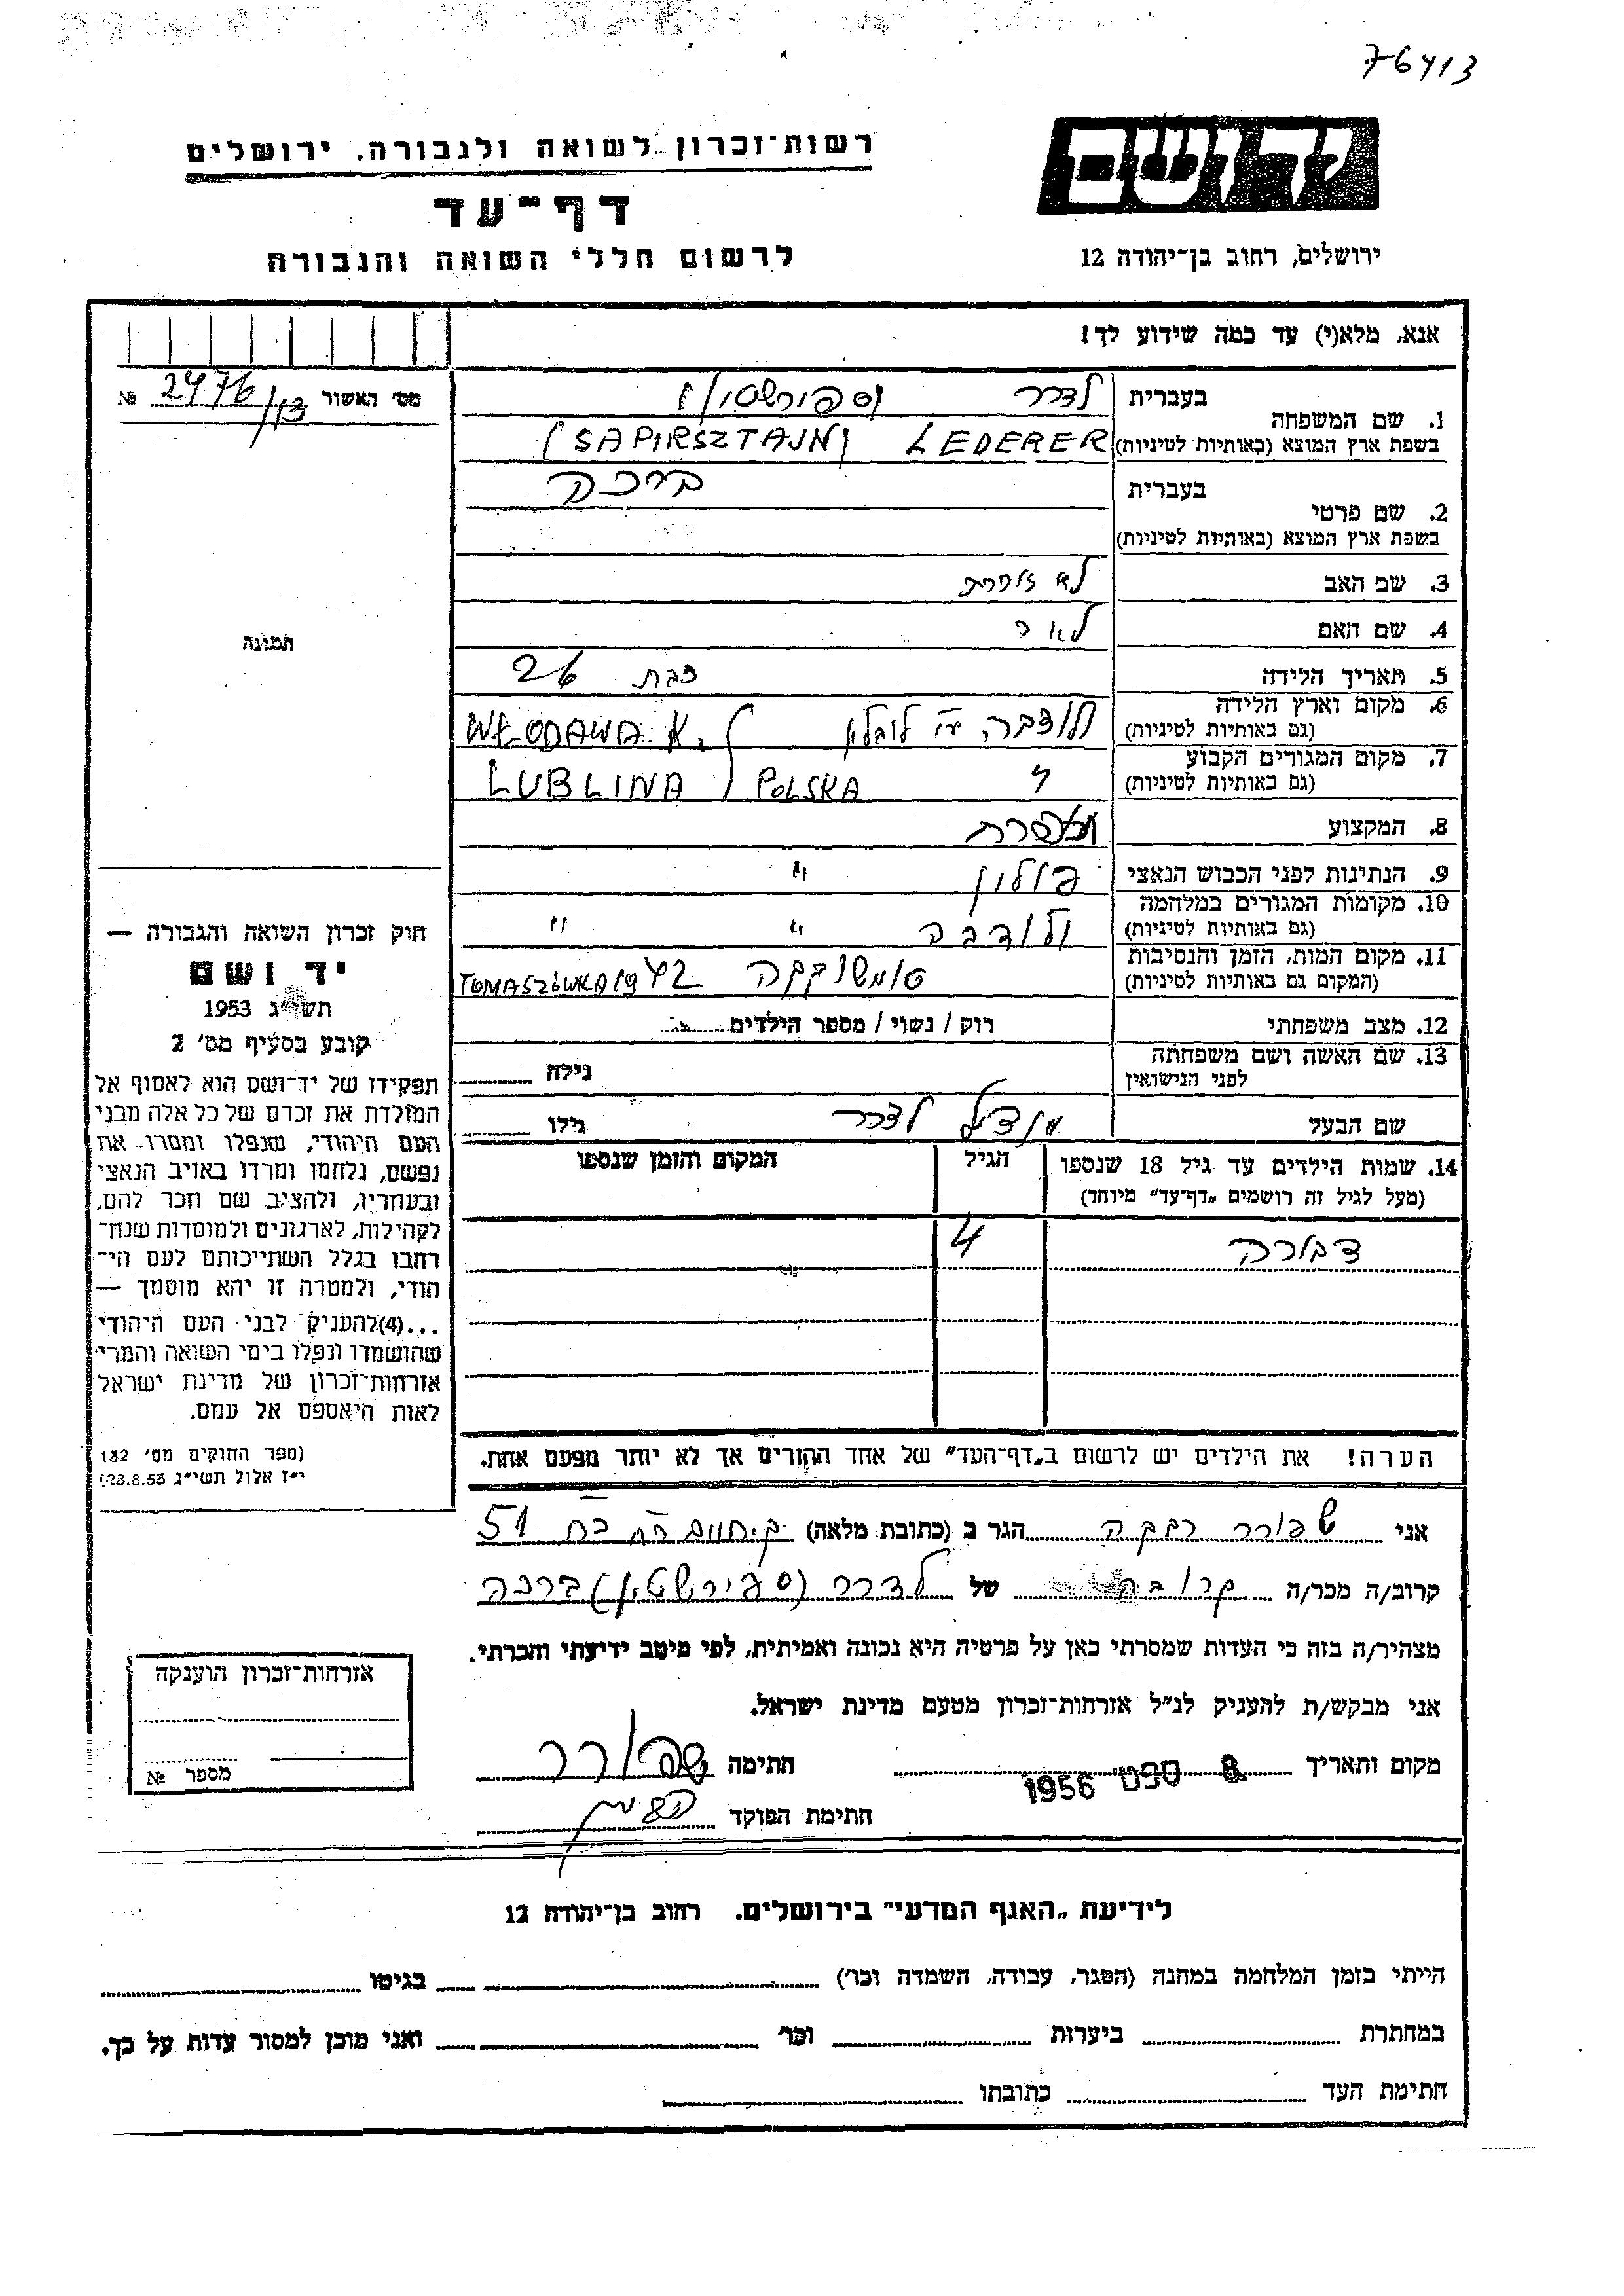 76413
יד ושם
רשות־זכרון לשואה ולגבורה, ירושלים
דף־עד
לרשום חללי השואה והגבורה
ירושלים, רחוב בן־יהודה 12
אנא, מלא(י) עד כמה שידוע לך!
מס׳ האשור 2476/13 №
1. שם המשפחה
בעברית לדרר (ספירשטין)
בשפת ארץ המוצא (באותיות לטיניות) LEDERER (SAPIRSZTAJN)
2. שם פרטי
בעברית ברכה
בשפת ארץ המוצא (באותיות לטיניות)
3. שם האב לא זוכרת
4. שם האם לא ז
5. תאריך הלידה כבת 26
6. מקום וארץ הלידה
(גם באותיות לטיניות) ולודבה ע״י לובלין WŁODAWA K.
7. מקום המגורים הקבוע
(גם באותיות לטיניות) LUBLINA / POLSKA
8. המקצוע
9. הנתינות לפני הכבוש הנאצי פולין "
10. מקומות המגורים במלחמה
(גם באותיות לטיניות) ולודבה " "
11. מקום המות, הזמן והנסיבות
(המקום גם באותיות לטיניות) טומשובקה TOMASZÓWKA 1942
12. מצב משפחתי רוק / נשוי / מספר הילדים
13. שם האשה ושם משפחתה
לפני הנישואין גילה
שם הבעל מנדיל לדרר גילו
14. שמות הילדים עד גיל 18 שנספו
(מעל לגיל זה רושמים „דף־עד״ מיוחד)
הגיל
המקום והזמן שנספו
דבורה 4
הערה! את הילדים יש לרשום ב„דף־העד״ של אחד ההורים אך לא יותר מפעם אחת.
תמונה
חוק זכרון השואה והגבורה —
יד ושם
תשי״ג 1953
קובע בסעיף מס׳ 2
תפקידו של יד־ושם הוא לאסוף אל
המולדת את זכרם של כל אלה מבני
העם היהודי, שנפלו ומסרו את
נפשם, נלחמו ומרדו באויב הנאצי
ובעוזריו, ולהציב שם וזכר להם,
לקהילות, לארגונים ולמוסדות שנח־
רבו בגלל השתייכותם לעם הי־
הודי, ולמטרה זו יהא מוסמך —
...(4)להעניק לבני העם היהודי
שהושמדו ונפלו בימי השואה והמרי
אזרחות־זכרון של מדינת ישראל
לאות היאספם אל עמם.
(ספר החוקים מס׳ 132
י״ז אלול תשי״ג 28.8.53)
אני שפורר רבקה הגר ב (כתובת מלאה) 51
קרוב/ה מכר/ה קרובה של לדרר (ספירשטין) ברכה
מצהיר/ה בזה כי העדות שמסרתי כאן על פרטיה היא נכונה ואמיתית, לפי מיטב ידיעתי והכרתי.
אני מבקש/ת להעניק לנ״ל אזרחות־זכרון מטעם מדינת ישראל.
מקום ותאריך 8 ספט׳ 1956 חתימה שפורר
חתימת הפוקד
אזרחות־זכרון הוענקה
מספר №
לידיעת „האגף המדעי״ בירושלים. רחוב בן־יהודה 12
הייתי בזמן המלחמה במחנה (הסגר, עבודה, השמדה וכו׳) בגיטו
במחתרת ביערות וכו׳ ואני מוכן למסור עדות על כך.
חתימת העד כתובתו